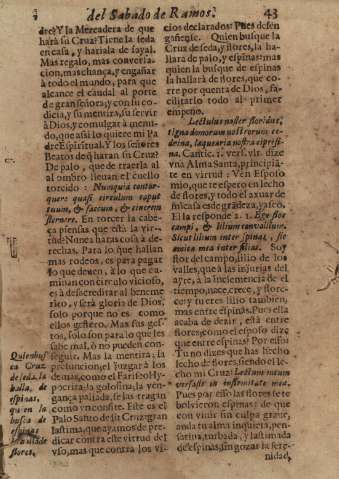 del Sabado de Ramos.
43
dre? Y la Mercadera de que
harà su Cruz? Tiene la seda
en casa, y hariala de sayal.
Mas regalo, mas conversa-
cion, mas chança, y engañar
à todo el mundo, para que
alcance el caudal al porte
de gran señora; y con su co-
dicia, y su mentira, su servir
à Dios, y comulgar à menu-
do, que assi lo quiere mi Pa-
dre Espiritual. Y los señores
Beatos de q̃ haran su Cruz?
De palo, que de traerla al
al ombro llevan el cuello
torcido: Nunquid contor-
quere quasi circulum caput
tuum, & saccum, & cinerem
sternere. En torcer la cabe-
ça piensas que està la vir-
tud? Nunca harás cosa à de-
rechas. Para lo que hallan
mas rodeos, es para pagar
lo que deven, à lo que ca-
minan con circulo vicioso,
es à desacreditar al beneme-
rito, y será gloria de Dios,
solo porque no es como
ellos gestero. Mas sus ges-
tos, solo son para lo que les
sabe mal, ò no pueden con-
seguir. Mas la mentira; la
presuncion; el juzgar à los
demas, como el Fariseo Hy-
pocrita; la golosina; la ven-
gança paliada, se las tragan
como vn confite. Este es el
Palo Santo de su Cruz: gran
lastima, que ayamos de pre-
dicar contra este virtud del
vso, mas que contra los vi-
Quien bus-
ca Cruz
de seda, la
halla, de
espinas,
qu en la
busca de
espinas
flores.
cios declarados: Pues desen
gañese. Quien busque la
Cruz de seda, y flores, la ha-
llara de palo, y espinas: mas
quien la busque de espinas
la hallarà de flores, que cor-
re por quenta de Dios, fa-
cilitarlo todo al primer
empeño.
Lectulus noster floridus,
tigna domorum nostrarum ce-
drina, laquearia nostra cipresi-
na. Cantic. 1. vers. vlt. dize
vna Alma Santa, principiā-
te en virtud: Ven Esposo
mio, que te espero en lecho
de flores, y todo el axuar de
mi casa es de grādeza, y asseo.
El la responde 2. 1. Ego flos
campi, & lilium convallium.
Sicut lilium inter spinas, sic
amica mea inter filias. Soy
flor del campo, lilio de los
valles, que à las injurias del
ayre, à la inclemencia de el
tiempo, nace, crece, y flore-
ce; y su eres lilio tambien,
mas entre espinas. Pues ella
acaba de dezir, està entre
flores: como el esposo dize
que entre espinas? Por esso:
Tu no dizes que has hecho
lecho de flores, siendo el le-
cho mi Cruz? Lectum meum
versasti in infirmitate mea.
Pues por esso las flores se te
bolvieron espinas: de que
con vivir sin culpa grave,
anda tu alma inquieta, pen-
sativa, turbada, y lastimada
de espinas, sin gozar la sere-
nidad,